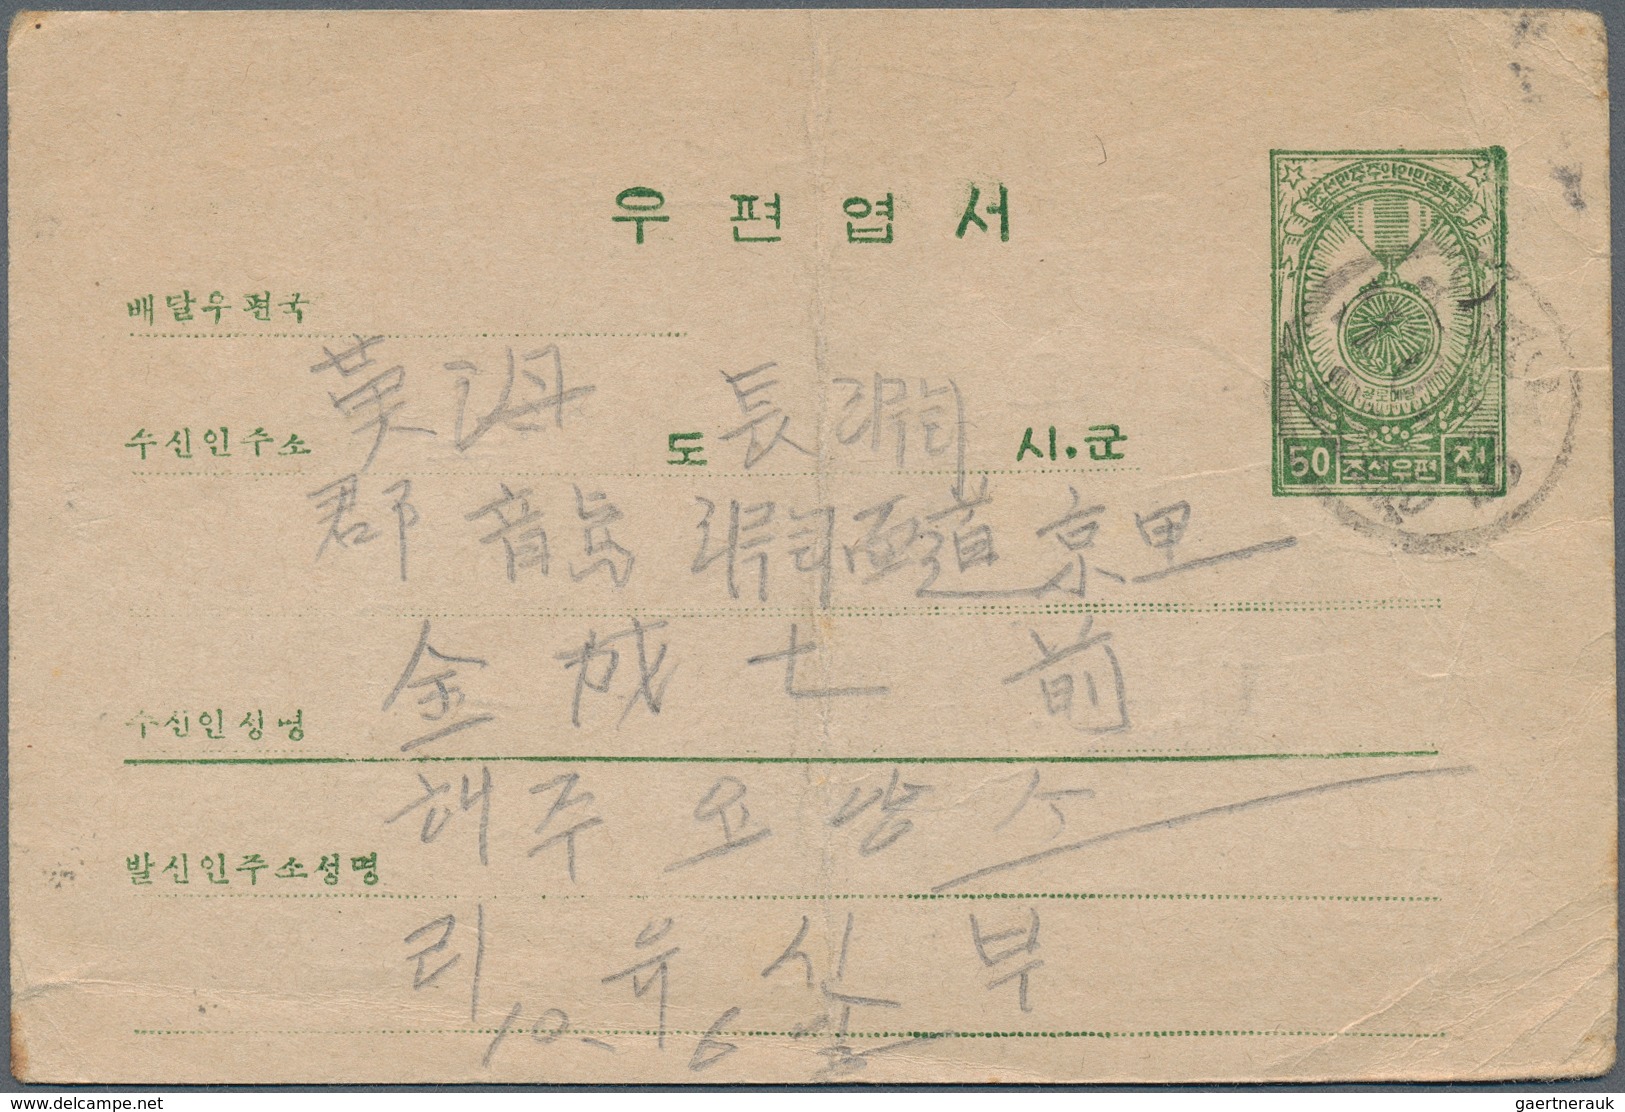 우편엽서
조선민주주의인민공화국
배달우편국
수신인주소 黃海 도 長淵 시.군
50 조선우편 전
郡 龍淵面 道京里
수신인성명 金成七 前
해주요양소
발신인주소성명
리유신 부
10. 6
www.delcampe.net
gaertnerauk